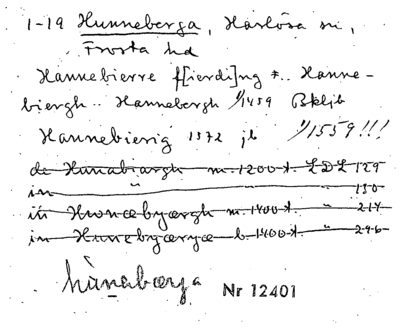 1-19 Hunneberga, Harlösa sn,
Frosta hd
Hannebierre f[ierdi]ng *.. Hanne-
biergh.. Hannebergh 1/1459 Bkljb
Hannebierig 1572 jb 1/1559!!!
de Hunabiargh m. 1200-t. LDL 129
in " 130
in Hwnæbyærgh m. 1400-t. " 214
in Hunebyærgæ b. 1400-t. " 296
hùnabærja Nr 12401